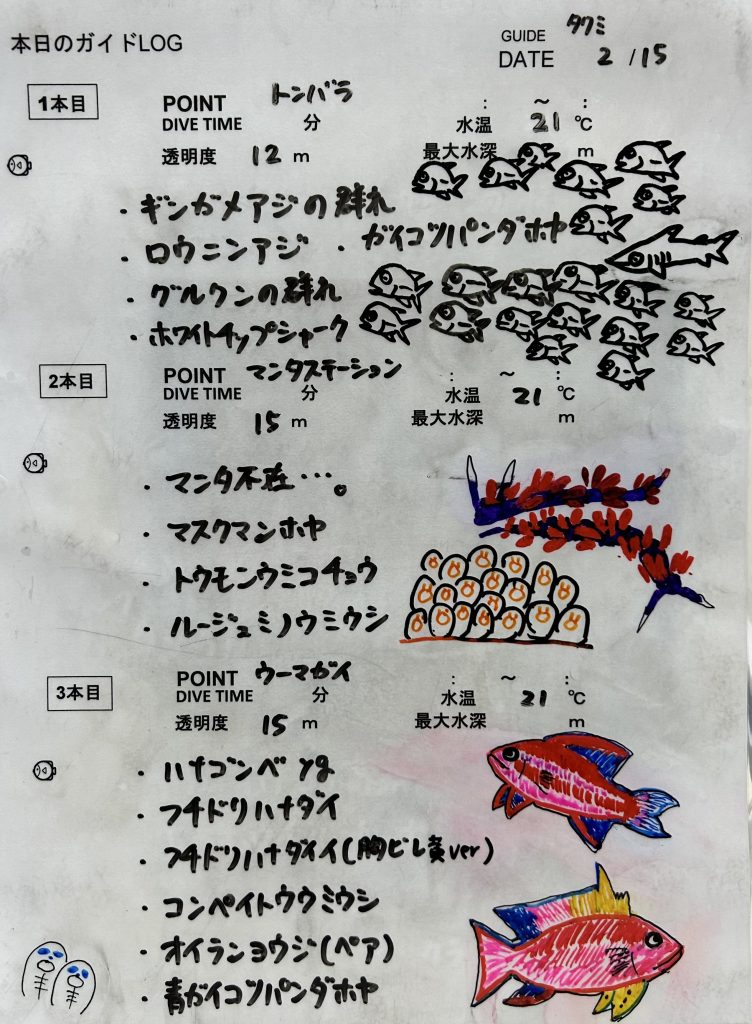 本日のガイドLOG
GUIDE タクミ
DATE 2/15
1本目
POINT トンバラ : ～ :
DIVE TIME 分 水温 21 ℃
透明度 12 m 最大水深 m
・ギンガメアジの群れ
・ロウニンアジ ・ガイコツパンダホヤ
・グルクンの群れ
・ホワイトチップシャーク
2本目
POINT マンタステーション : ～ :
DIVE TIME 分 水温 21 ℃
透明度 15 m 最大水深 m
・マンタ不在…。
・マスクマンホヤ
・トウモンウミコチョウ
・ルージュミノウミウシ
3本目
POINT ウーマガイ : ～ :
DIVE TIME 分 水温 21 ℃
透明度 15 m 最大水深 m
・ハナゴンベ yg
・フチドリハナダイ
・フチドリハナダイイ(胸ビレ黄ver)
・コンペイトウウミウシ
・オイランヨウジ(ペア)
・青ガイコツパンダホヤ